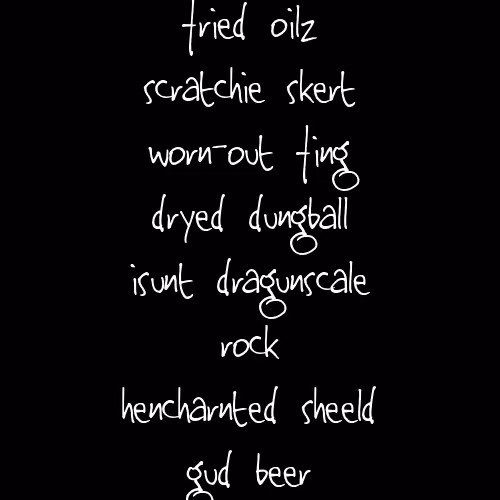 fried oilz
scratchie skert
worn-out ting
dryed dungball
isunt dragunscale
rock
hencharnted sheeld
gud beer